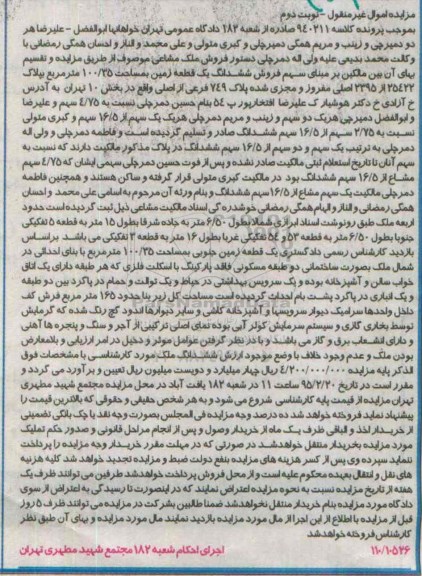 مزایده اموال غیرمنقول - نوبت دوم
بموجب پرونده کلاسه ۹۴۰۲۱۱ صادره از شعبه ۱۸۲ دادگاه عمومی تهران خواهانها ابوالفضل - علیرضا هر
دو دمیرچی و زینب و مریم همگی دمیرچلی و کبری متولی و علی محمد و الناز و احسان همگی رمضانی با
وکالت محمد بدیعی علیه ولی اله دمرچلی دستور فروش ملک مشاعی موصوف از طریق مزایده و تقسیم
بهای آن بین مالکین بر مبنای سهم فروش ششدانگ یک قطعه زمین بمساحت ۱۰۰/۳۵ مترمربع پلاک
۲۵۴۲۲ از ۲۳۹۵ اصلی مفروز و مجزی شده پلاک ۷۴۹ فرعی از اصلی واقع در بخش ۱۰ تهران به آدرس
خ آزادی خ دکتر هوشیار ک علیرضا افتخارپور پ ۵۴ بنام حسین دمرچلی نسبت به ۴/۷۵ سهم و علیرضا
و ابوالفضل دمیرچی هریک دو سهم و زینب و مریم دمرچلی هریک یک سهم از ۱۶/۵ سهم و کبری متولی
نسبت به ۲/۷۵ سهم از ۱۶/۵ سهم ششدانگ صادر و تسلیم گردیده است و فاطمه دمرچلی و ولی اله
دمرچلی به ترتیب یک سهم و دو سهم از ۱۶/۵ سهم ششدانگ در پلاک مذکور مالکیت دارند که نسبت به
سهم آنان تا تاریخ استعلام ثبتی مالکیت صادر نشده و پس از فوت حسین دمرچلی سهمی ایشان که ۴/۷۵ سهم
مشاع از ۱۶/۵ سهم ششدانگ بود در مالکیت کبری متولی قرار گرفته و ساکن هستند و همچنین فاطمه
دمرچلی مالکیت یک سهم مشاع از ۱۶/۵ سهم ششدانگ و بنام ورثه آن مرحوم به اسامی علی محمد و احسان
همگی رمضانی و الناز و الهام همگی رمضانی خوشدره گی اسناد مالکیت مشاعی ذیل ثبت گردیده است حدود
اربعه ملک طبق رونوشت اسناد ابرازی شمالا بطول ۶/۵۰ متر به جاده شرقا بطول ۱۵ متر به قطعه ۵ تفکیکی
جنوبا بطول ۶/۵۰ متر به قطعه ۵۳ و ۵۴ تفکیکی غربا بطول ۱۶ متر به قطعه ۳ تفکیکی می باشد. براساس
بازدید کارشناس رسمی دادگستری یک قطعه زمین جنوبی بمساحت ۱۰۰/۳۵ مترمربع با بنای احداثی در
شمال ملک بصورت ساختمانی دو طبقه مسکونی فاقد پارکینگ با اسکلت فلزی که هر طبقه دارای یک اتاق
خواب سالن و آشپزخانه بوده و یک سرویس بهداشتی در حیاط و یک توالت و حمام در پاگرد بین دو طبقه
و یک انباری در پاگرد پشت بام احداث گردیده است مساحت کل زیر بنا حدود ۱۶۵ متر مربع فرش کف
داخل واحدها سرامیک دیوار سرویسها و آشپزخانه کاشی و سایر دیوارها اندود گچ رنگ شده که گرمایش
توسط بخاری گازی و سیستم سرمایش کولر آبی بوده نمای اصلی ترکیبی از آجر و سنگ و پنجره ها آهنی
و دارای انشعاب برق و گاز می باشد و با در نظر گرفتن عوامل موثر و دخیل در امر ارزیابی و بلامعارض
بودن ملک و عدم وجود خلاف با وضع موجود ارزش ششدانگ ملک مورد کارشناسی با مشخصات فوق
الذکر پایه مزایده ۴/۲۰۰/۰۰۰/۰۰۰ ریال چهار میلیارد و دویست میلیون ریال تعیین و برآورد می گردد و
مقرر است در تاریخ ۹۵/۲/۲۰ ساعت ۱۱ در شعبه ۱۸۲ یافت آباد در محل مزایده مجتمع شهید مطهری
تهران مزایده از قیمت پایه کارشناسی شروع می شود و به هر شخص حقیقی و حقوقی که بالاترین قیمت را
پیشنهاد نماید فروخته خواهد شد ده درصد وجه مزایده فی المجلس بصورت وجه نقد یا چک بانکی تضمینی
از خریدار اخذ و الباقی ظرف یک ماه از خریدار وصول و پس از انجام مراحل قانونی و صدور حکم تملیک
مورد مزایده بخریدار منتقل خواهدشد در صورتی که در مهلت مقرر خریدار وجه مزایده را پرداخت
ننماید سپرده وی پس از کسر هزینه های مزایده بنفع دولت ضبط و مزایده تجدید خواهد شد کلیه هزینه
های نقل و انتقال بعهده محکوم علیه است و از محل فروش پرداخت خواهدشد طرفین می توانند ظرف یک
هفته از تاریخ مزایده نسبت به نحوه مزایده اعتراض نمایند که در اینصورت تا رسیدگی به اعتراض از سوی
دادگاه مورد مزایده بنام خریدار منتقل نخواهدشد ضمنا طالبین بشرکت در مزایده می توانند ظرف ۵ روز
قبل از مزایده با اطلاع از این اجرا از مال مورد مزایده بازدید نمایند مال مورد مزایده و بهای آن طبق نظر
کارشناس فروخته خواهدشد
۱۱۰/۱۰۵۳۶ اجرای احکام شعبه ۱۸۲ مجتمع شهید مطهری تهران